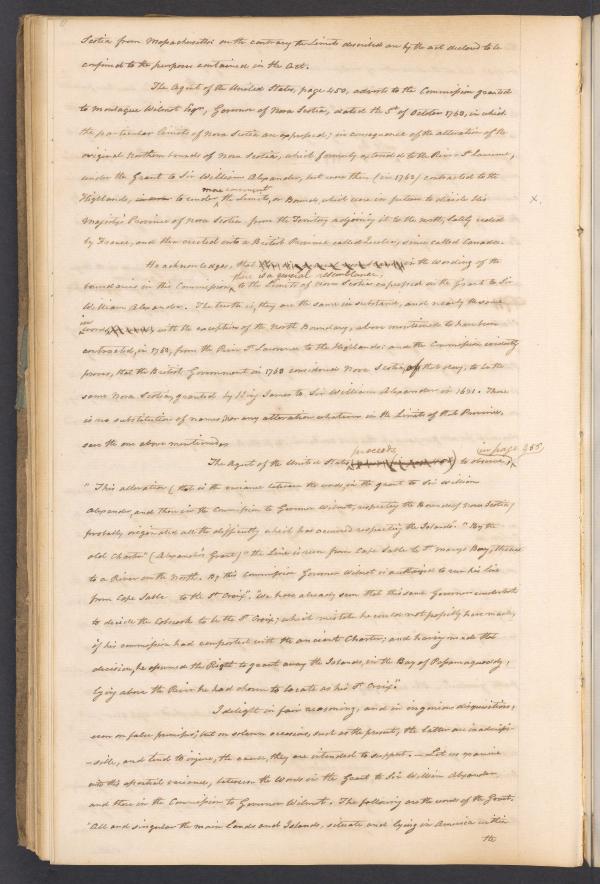 Scotia from Massachusetts: on the contrary the Limits described are by the act declared to be
confined to the purposes contained in the Act.
The Agent of the United States, page 450, adverts to the Commission granted
to Montague Wilmot Esqr, Governor of Nova Scotia, dated the 5th of October 1763, in which
the particular limits of Nova Scotia are expressed; in consequence of the alteration of the
original Northern bounds of Nova Scotia, which formerly extended to the River St Laurence,
under the Grant to Sir William Alexander, but were then (in 1763) contracted to the
more convenient
Highlands, to render the Limits, or Bounds, which were in future to divide His
x.
Majesty's Province of Nova Scotia, from the Territory adjoining it to the north, lately ceded
by France, and then erected into a British Province called Quebec, since called Canada.
He acknowledges, that in the wording of the
there is a general resemblance,
boundaries in this Commission to the Limits of Nova Scotia expressed in the Grant to Sir
William Alexander. The truth is, they are the same in substance, and nearly the same
in
words, with the exception of the North Boundary, above mentioned to have been
contracted, in 1763, from the River St Laurence to the Highlands: and the Commission evidently
proves, that the British Government in 1763 considered Nova Scotia, of that day, to be the
same Nova Scotia, granted by King James to Sir William Alexander in 1621. There
is no substitution of names, nor any alteration whatever in the Limits of that Province,
save the one above mentioned.
proceeds in page 455
The Agent of the United States to observe,
"This alteration (that is the variance between the words in the grant to Sir William
Alexander, and those in the Commission to Governor Wilmot, respecting the Bounds of Nova Scotia)
probably originated all the difficulty which has occurred respecting the Islands". "By the
old Charter" (Alexander's Grant) "the Line is run from Cape Sable to St Marys Bay, thence
to a River on the North. By this Commission Governor Wilmot is authorized to run his line
from Cape Sable to the St Croix". "We have already seen that this same Governor undertook
to decide the Cobscook to be the St Croix; which mistake he could not possibly have made,
if his commission had comported with the ancient Charter; and having made that
decision, he assumed the Right to grant away the Islands, in the Bay of Passamaquoddy,
lying above the River he had chosen to locate as his St Croix".
I delight in fair reasoning, and in ingenious disquisitions,
even on false principles; but on solemn occasions, such as the present, the latter are inadmis-
-sible, and tend to injure, the cause, they are intended to support. – Let us examine
into this asserted variance, between the Words in the Grant to Sir William Alexander
and those in the Commission to Governor Wilmot. The following are the words of the Grant.
"All and singular the main Lands and Islands, situate and lying in America within
the